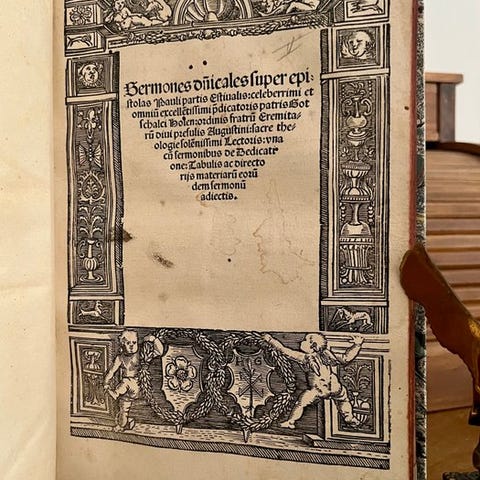 Sermones dn̄icales super epi⸗
stolas Pauli partis Estiualis: celeberrimi et
omniū excellētissimi p̄dicatoris patris Got
schalci Holen: ordinis fratrū Eremita⸗
rū diui presulis Augustini: sacre the⸗
ologie solēnissimi Lectoris: vna
cū sermonibus de Dedicati⸗
one: Tabulis ac directo
rijs materiarū eorū
dem sermonū
adiectis.